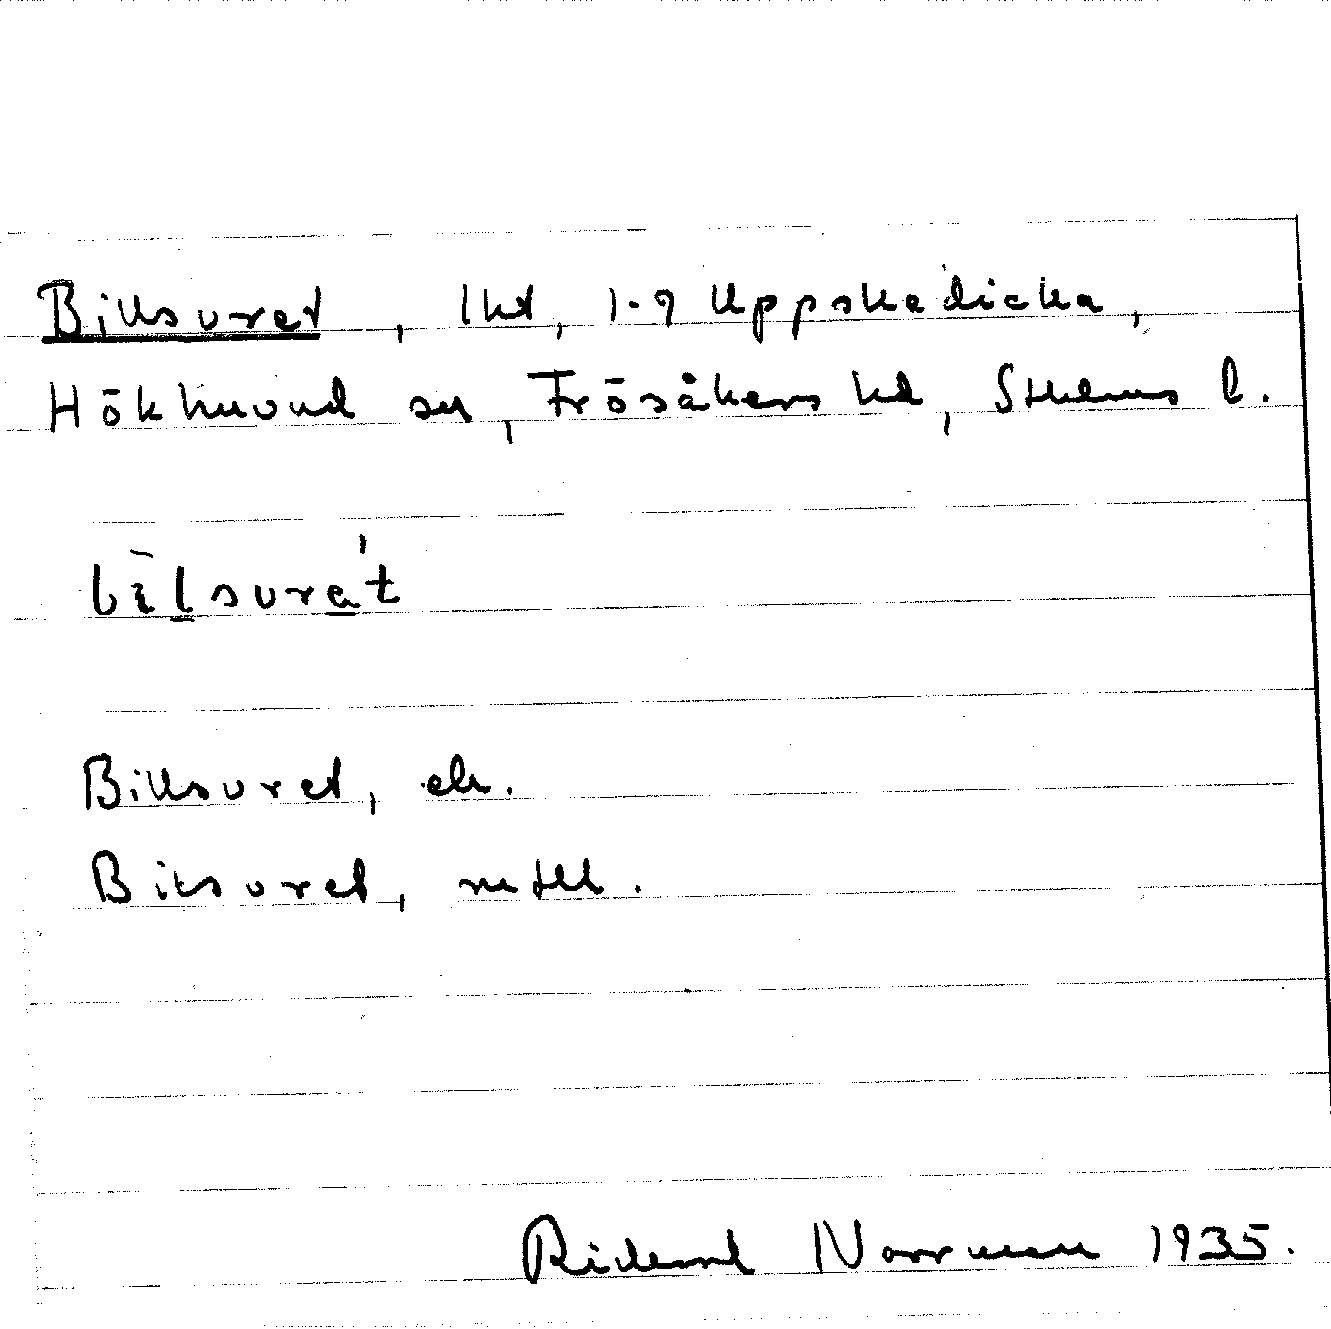 Billsuret, lht, 1-9 Uppskedicka,
Hökhuvud sn, Frösåkers hd, Sthlms l.
bìlsurat
Billsuret, ek.
Bilsuret, mtll.
Rickard Norrman 1935.